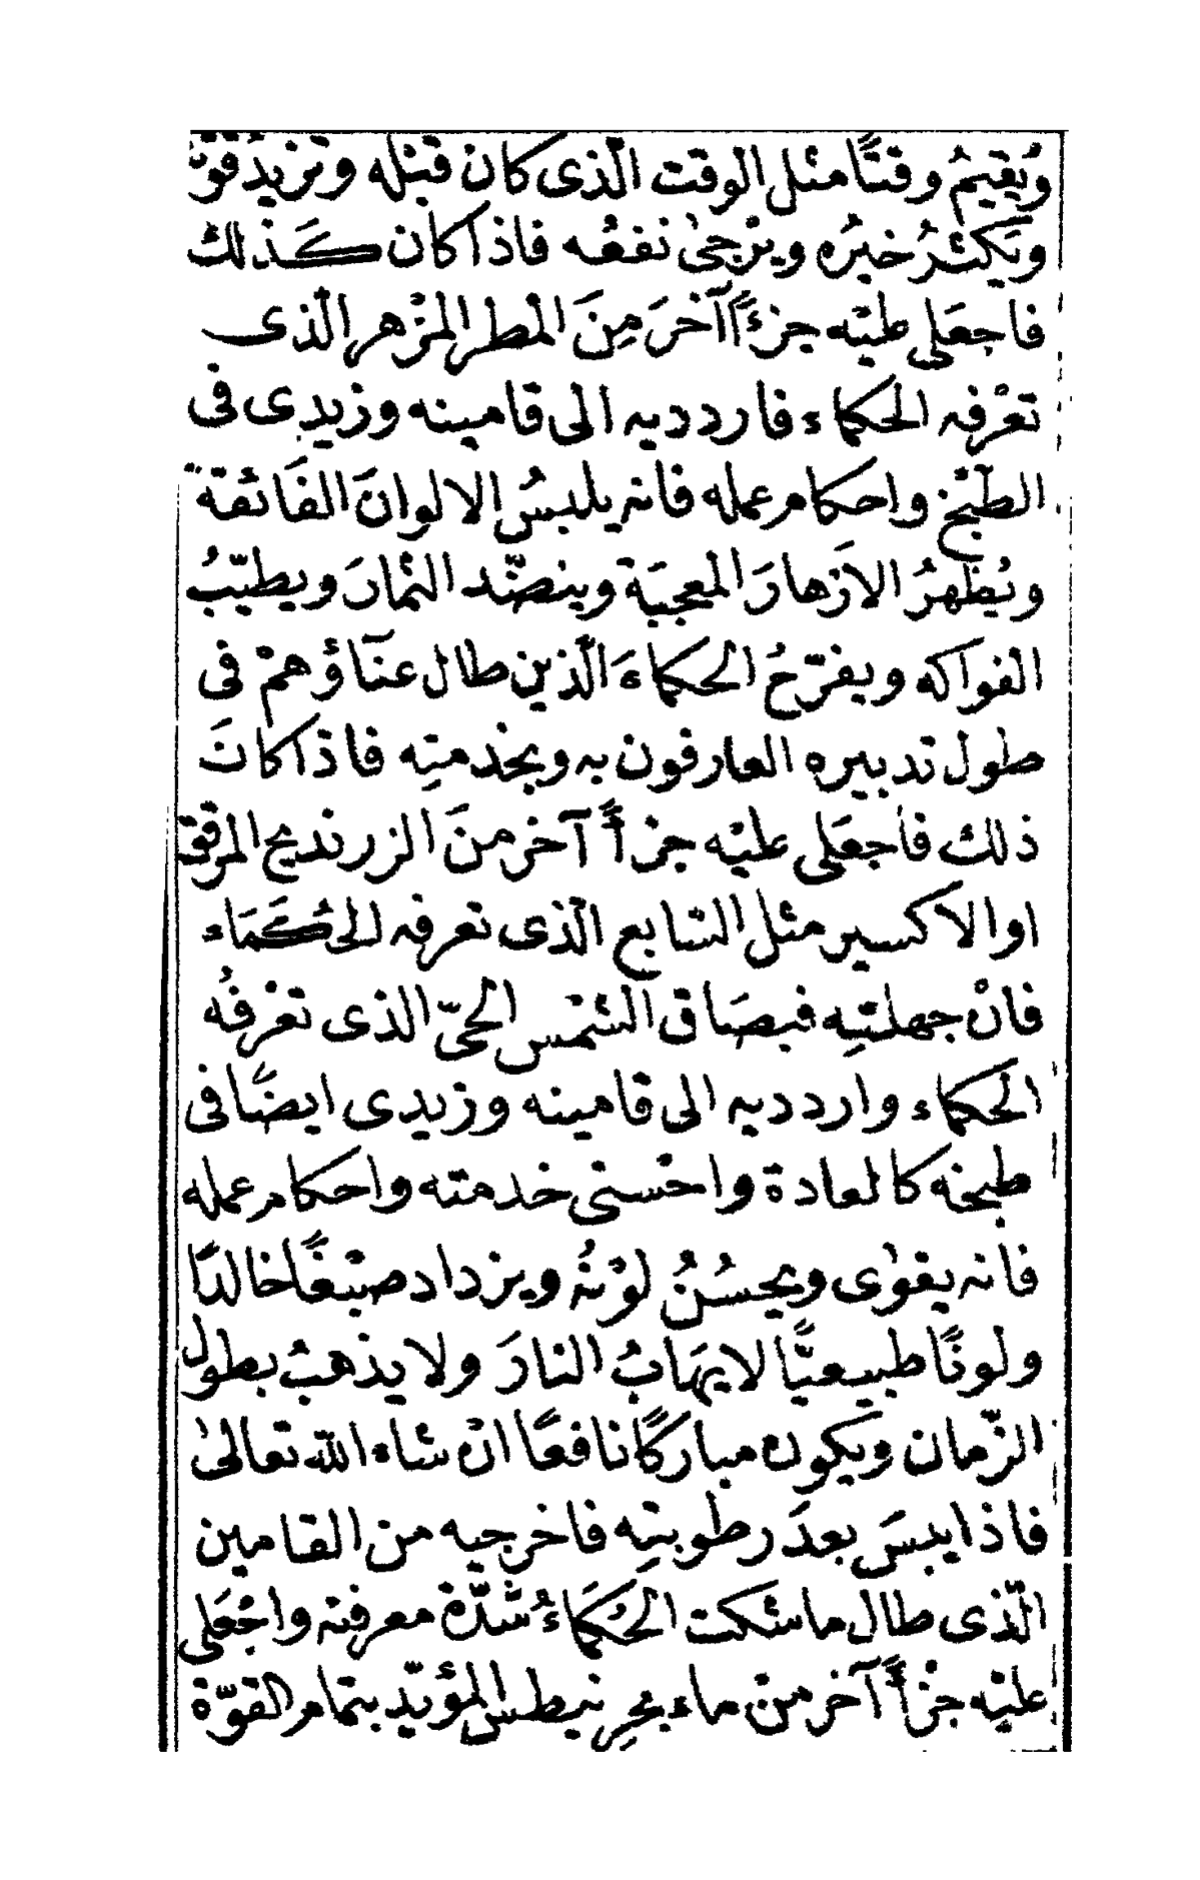 وَيُقيمُ وقتًا مثل الوقت الّذى كان قبْله وتزيدُ قوّته
ويَكثرُ خيرُه ويرْجىٰ نفعُه فاذا كان كَذلك
فاجعَلى عليْه جزءًا آخرَ مِنَ المْطر المزْهر الّذى
تعرْفه الحكماء فارددیه الى قامينه وزيدى فى
الطبْخ واحكام عمله فانه يلبسُ الالوانَ الفَائقة
ويُظهرُ الاَزهارَ المعجبَة وينضّد الثمْارَ ويطيّبُ
الفواكه ويفرّحُ الحكماءَ الّذين طال عنَاؤهمْ فى
طول تدبيره العارفون به وبخدمتِه فاذا كانَ
ذلك فاجعَلى عليْه جزأً آخر منَ الزرنديخ المرقق
او الاكسير مثل السّابع الّذى تعرفه الحُكَمَاء
فانْ جهلتيِه فبصَاق الشمْس الحىّ الذى تعْرفُه
الحكماء وارددیه الى قامينه وزيدى ايضًا فى
طبخه كالعادة واحْسنى خدمته واحكام عمله
فانه يقوىٰ ويحسُنُ لوْنهُ ويزداد صبْغًا خالدًا
ولونًا طبيعيًّا لا يهَابُ النارَ ولا يذهبُ بطول
الزّمان ويكون مباركًا نافعًا انْ شاء الله تعالىٰ
فاذا يبسَ بعدَ رطوبتِه فاخرجيه من القامين
الّذى طال ما شكت الحُكَماءُ شدّة معرفته واجْعَلى
عليْه جزْأً آخر منْ ماء بحرِ نيطس المؤيّد بتمام القوّة